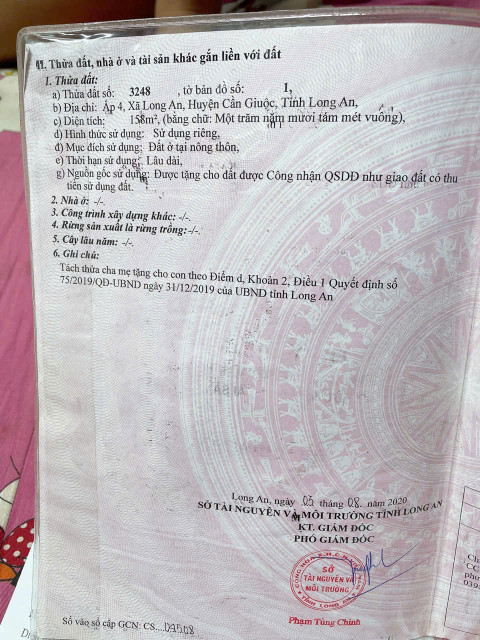 II. Thửa đất, nhà ở và tài sản khác gắn liền với đất
1. Thửa đất:
a) Thửa đất số: 3248 , tờ bản đồ số: 1,
b) Địa chỉ: Ấp 4, Xã Long An, Huyện Cần Giuộc, Tỉnh Long An,
c) Diện tích: 158m², (bằng chữ: Một trăm năm mươi tám mét vuông),
d) Hình thức sử dụng: Sử dụng riêng,
đ) Mục đích sử dụng: Đất ở tại nông thôn,
e) Thời hạn sử dụng: Lâu dài,
g) Nguồn gốc sử dụng: Được tặng cho đất được Công nhận QSDĐ như giao đất có thu
tiền sử dụng đất.
2. Nhà ở: -/-.
3. Công trình xây dựng khác: -/-.
4. Rừng sản xuất là rừng trồng:-/-.
5. Cây lâu năm: -/-.
6. Ghi chú:
Tách thửa cha mẹ tặng cho con theo Điểm d, Khoản 2, Điều 1 Quyết định số
75/2019/QĐ-UBND ngày 31/12/2019 của UBND tỉnh Long An
Long An, ngày 03 tháng 08 năm 2020
SỞ TÀI NGUYÊN VÀ MÔI TRƯỜNG TỈNH LONG AN
KT. GIÁM ĐỐC
PHÓ GIÁM ĐỐC
SỞ
TÀI NGUYÊN VÀ
MÔI TRƯỜNG
TỈNH LONG AN
Phạm Tùng Chinh
Số vào sổ cấp GCN: CS...04508